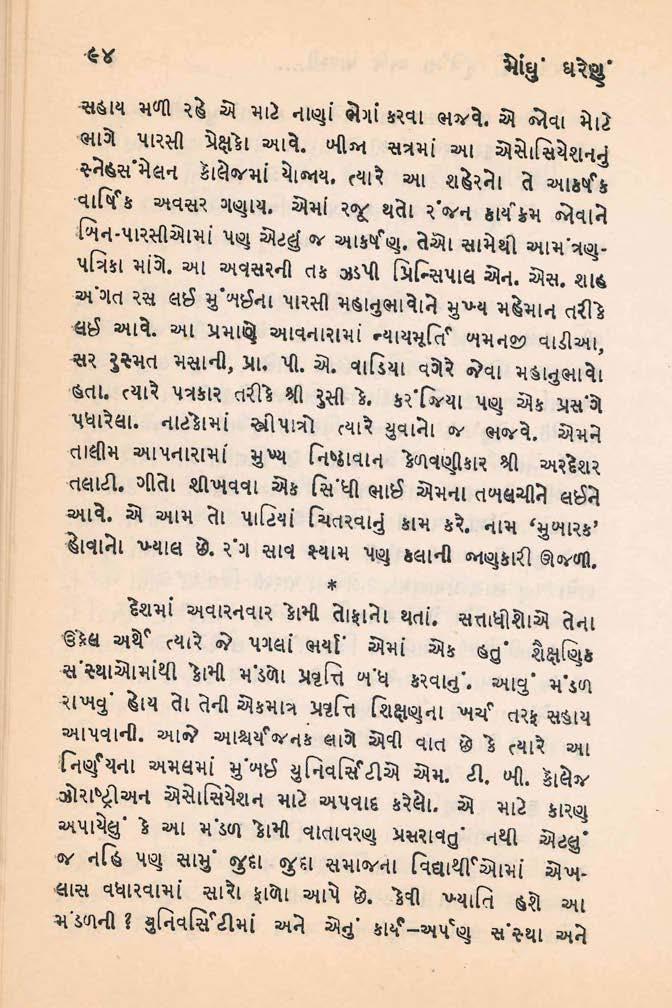 ૯૪
મોંઘું ઘરેણું
સહાય મળી રહે એ માટે નાણાં ભેગાં કરવા ભજવે. એ જોવા મોટે
ભાગે પારસી પ્રેક્ષકો આવે. બીજા સત્રમાં આ એસોસિયેશનનું
સ્નેહસંમેલન કૉલેજમાં યોજાય. ત્યારે આ શહેરનો તે આકર્ષક
વાર્ષિક અવસર ગણાય. એમાં રજૂ થતો રંજન કાર્યક્રમ જોવાને
બિન-પારસીઓમાં પણ એટલું જ આકર્ષણ. તેઓ સામેથી આમંત્રણ-
પત્રિકા માંગે. આ અવસરની તક ઝડપી પ્રિન્સિપાલ એન. એસ. શાહ
અંગત રસ લઈ મુંબઈના પારસી મહાનુભાવોને મુખ્ય મહેમાન તરીકે
લઈ આવે. આ પ્રમાણે આવનારામાં ન્યાયમૂર્તિ બમનજી વાડીઆ,
સર રુસ્મત મસાની, પ્રા. પી. એ. વાડિયા વગેરે જેવા મહાનુભાવો
હતા. ત્યારે પત્રકાર તરીકે શ્રી રુસી કે. કરંજિયા પણ એક પ્રસંગે
પધારેલા. નાટકોમાં સ્ત્રીપાત્રો ત્યારે યુવાનો જ ભજવે. એમને
તાલીમ આપનારામાં મુખ્ય નિષ્ઠાવાન કેળવણીકાર શ્રી અરદેશર
તલાટી. ગીતો શીખવવા એક સિંધી ભાઈ એમના તબલચીને લઈને
આવે. એ આમ તો પાટિયાં ચિતરવાનું કામ કરે. નામ ‘મુબારક’
હોવાનો ખ્યાલ છે. રંગ સાવ શ્યામ પણ કલાની જાણકારી ઊજળી.
*
દેશમાં અવારનવાર કોમી તોફાનો થતાં. સત્તાધીશોએ તેના
ઉકેલ અર્થે ત્યારે જે પગલાં ભર્યાં એમાં એક હતું શૈક્ષણિક
સંસ્થાઓમાંથી કોમી મંડળો પ્રવૃત્તિ બંધ કરવાનું. આવું મંડળ
રાખવું હોય તો તેની એકમાત્ર પ્રવૃત્તિ શિક્ષણના ખર્ચ તરફ સહાય
આપવાની. આજે આશ્ચર્યજનક લાગે એવી વાત છે કે ત્યારે આ
નિર્ણયના અમલમાં મુંબઈ યુનિવર્સિટીએ એમ. ટી. બી. કૉલેજ
ઝોરાષ્ટ્રીઅન એસોસિયેશન માટે અપવાદ કરેલો. એ માટે કારણ
અપાયેલું કે આ મંડળ કોમી વાતાવરણ પ્રસરાવતું નથી એટલું
જ નહિ પણ સામું જુદા જુદા સમાજના વિદ્યાર્થીઓમાં એખ-
લાસ વધારવામાં સારો ફાળો આપે છે. કેવી ખ્યાતિ હશે આ
મંડળની ? યુનિવર્સિટીમાં અને એનું કાર્ય–અર્પણ સંસ્થા અને